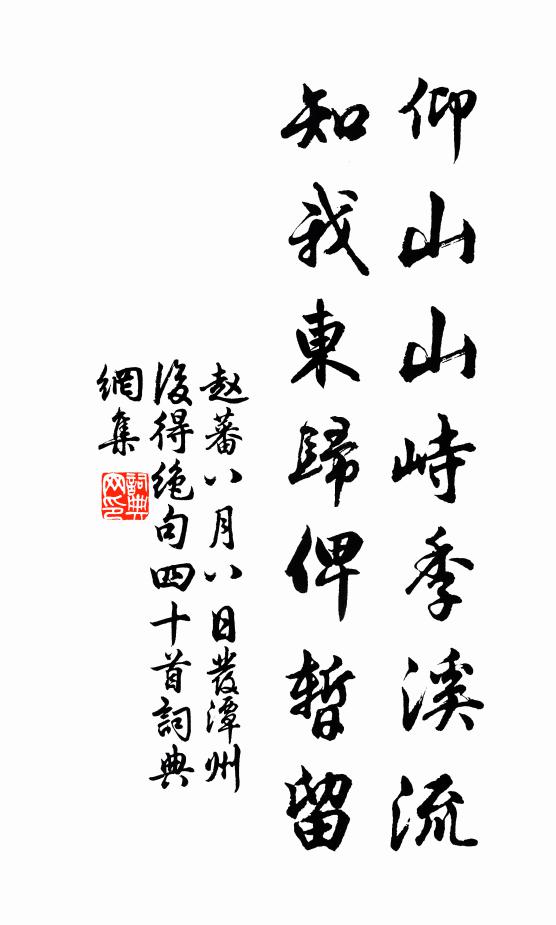 仰山山峙季溪流
知我東歸俾暫留
赵蕃八月八日發潭州
後得绝句四十首詞典
網集
詞典网印